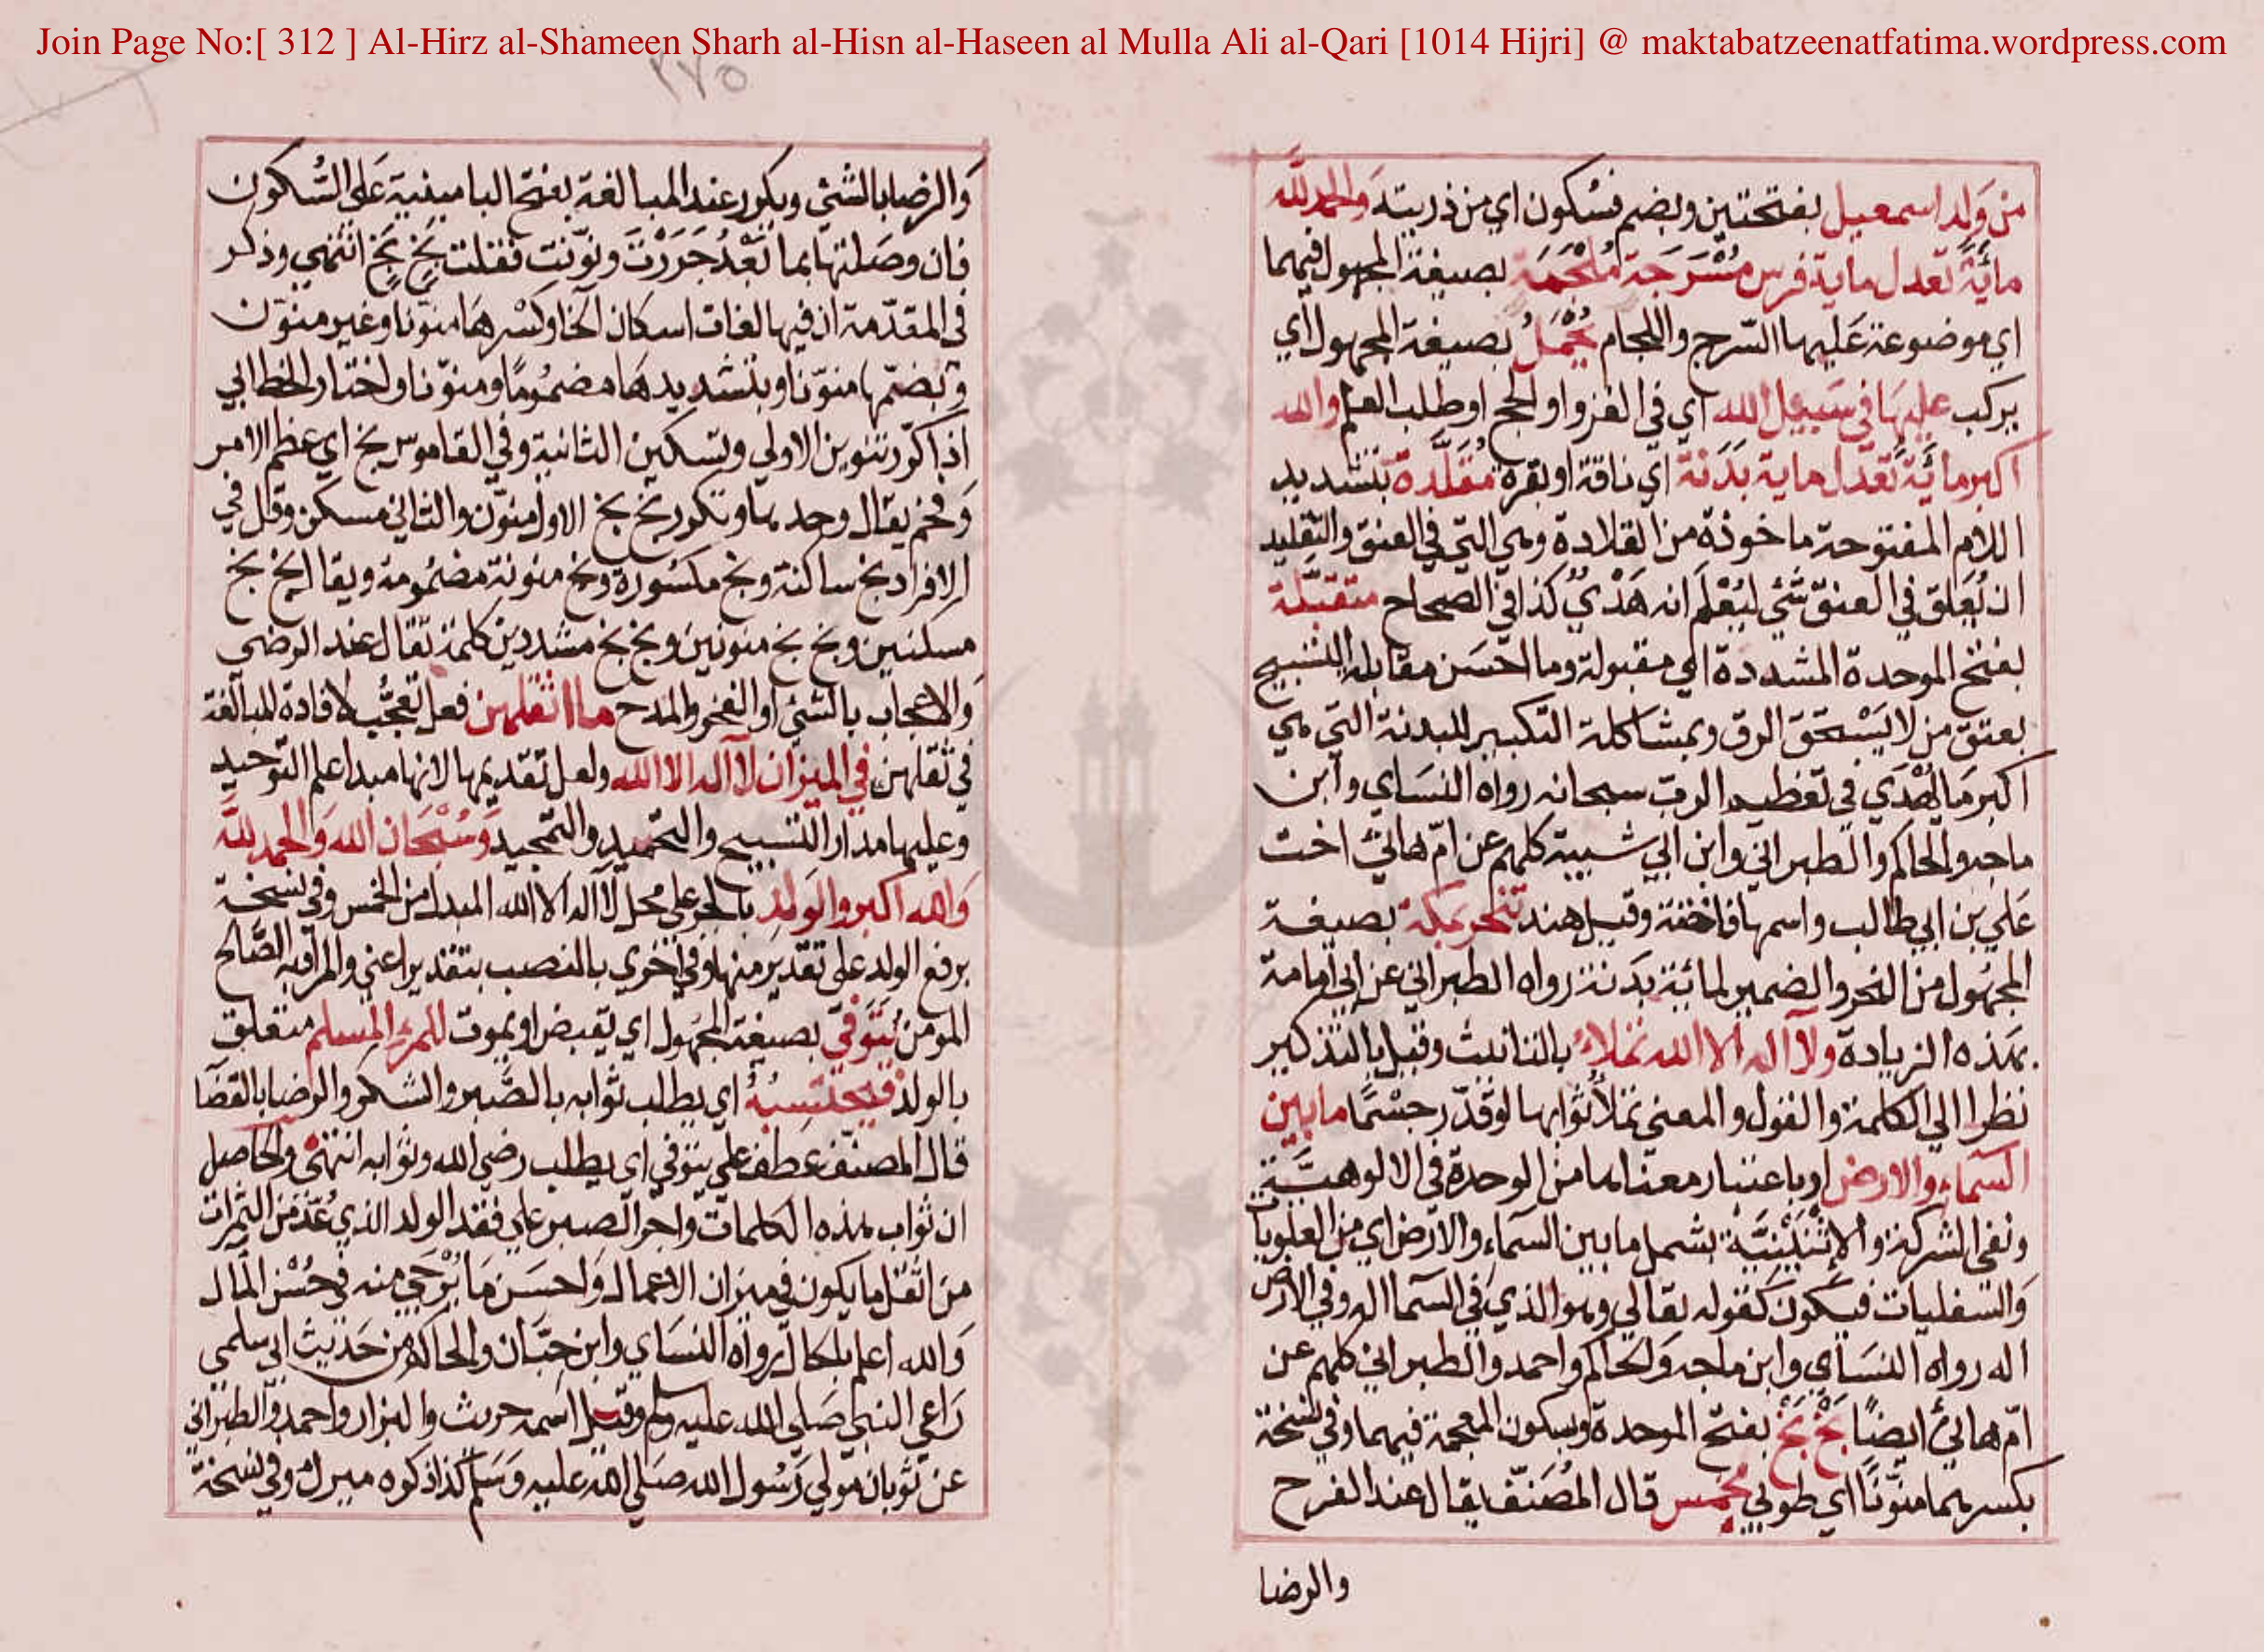 Join Page No:[ 312 ] Al-Hirz al-Shameen Sharh al-Hisn al-Haseen al Mulla Ali al-Qari [1014 Hijri] @ maktabatzeenatfatima.wordpress.com
٢٧٥
من وَلد اسمعيل بفتحتين وبضم فسُكون اي من ذريته والحمد للّه
مائةً تعدل ماية فرس مُسْرَجة مُلْجَمَة بصيغة المجهول فيهما
اي موضوعة عَليها السّرج واللجام يُحْمَلُ بصيغة المجهول اي
يركب عليهَا في سَبيل الله اي في الغزو او الحج او طلب العلم والله
اكبر مائةً تَعدل ماية بَدَنَة اي ناقة او بقرة مُقَلَّدة بتشديد
اللام المفتوحة ماخوذة من القلادة وهي التي في العنق والتقليد
ان يُعَلق في العنق شئ ليُعْلَم انه هَدْيٌ كذا في الصحاح متقبّلة
بفتح الموحدة المشددة اي مقبولة وما احسَن مقابلة التسبيح
بعتق من لا يَسْتحقَ الرق وبمشاكلة التكبير للبدنة التي هي
اكبر مَا يُهدَي في تعظيم الرب سبحانه رواه النسَاي وابن
ماجه والحاكم والطبراني وابن ابي شيبة كلهم عن امّ هانئ اخت
عَلي بن ابي طالب واسمها فاختة وقيل هند تنحر بمكة بصيغة
المجهُول من النحر والضمير لمائة بدَنة رواه الطبراني عن ابي امامة
بهذه الزيادة ولا اله الا الله تملاءُ بالتانيث وقيل بالتذكير
نظرا الي الكلمة والقول والمعني تملأ ثوابها لو قدّر جسْمًا ما بين
السّماءِ والارض او باعتبار معناها من الوحدة في الالوهيَّة
ونفي الشركة والاثْنَيْنِيَّة يشمل ما بين السّماءِ والارض اي من العلويات
وَالسفليات فيكون كقوله تعالي وهو الذي في السّما اله وفي الارض
اله رواه النسَاي وابن ماجه وَالحَاكم واحمد والطبراني كلهم عن
امّ هانئ ايضًا بَخْ بَخْ بفتح الموحدة وسكون المعجمة فيهما وفي نسْخة
بكسرهما منوّنًا اي طوبي لخمس قال المُصَنّف يقال عند الفرح
والرضا
وَالرضا بالشئ ويكرر عند المبالغة بفتح البا مبنية عَلى السُّكون
فان وصَلتها بما بَعْدُ جَرَرْتَ ونوّنت فقلت بَخٍ بَخٍ انتهي وذكر
في المقدّمة ان فيها لغات اسكان الخا وكسْرهَا منوّنا وغير منوّن
وبضمّها منوّنا وبتشديدهَا مضمُومًا ومنوّنا واختار الخطابي
اذا كرّر تنوين الاولي وتسكين الثانية وفي القاموس بخ اي عظم الامر
وَفخم يقال وحدها وتكرر بخ بخ الاول منوّن والثاني مسكن وقل في
الافراد بخ ساكنة وبخ مكسُورة وبخ منونة مضمُومة ويقال بخ بخ
مسكنين وبخ بخ منونين وبخ بخ مشددين كلمة تقال عند الرضي
وَالاعجاب بالشئ او الفخر والمدح ما اثقلهن فعل تعجُّب لافادة المبالغة
في ثقلهن في الميزان لا اله الا الله ولعل تقديمها لانها مبدا علم التوحيد
وعليها مدار التسبيح والتحميد والتمجيد وَسُبْحَان الله وَالحمد للّه
وَالله اكبر والوَلد بالجر علي محل لا اله الا الله المبدل من الخمس وفي نسخة
برفع الولد علي تقدير منها وفي اخري بالنصب بتقدير اعني والمراد به الصَّالح
المومن يُتَوَفّي بصيغة المجهُول اي يقبض او يموت للمرءِ المسلم متعلق
بالولد فيحتسبُهُ اي يطلب ثوابه بالصَّبر والشكر والرضا بالقضَا
قال المصنّف عطف علي يتوفي اي يطلب رضي الله وثوابه انتهي والحاصل
ان ثواب هذه الكلمات واجر الصبر علي فقد الولد الذي عُدّ من الثمرات
من اثقل ما يكون في ميزان الاعمال وَاحسَن مَا يُرْجَي منه في حُسْن المآل
وَالله اعلم بالحال رواه النسَاي وابن حبَّان والحاكم من حَديث ابي سلمي
رَاعي النبي صَلي الله عليه وسلم وقيل اسمه حريث والبزار واحمد والطبراني
عن ثوبان مَولي رَسُول الله صَلي الله عليه وَسَلم كذا ذكره ميرك وفي نسخة